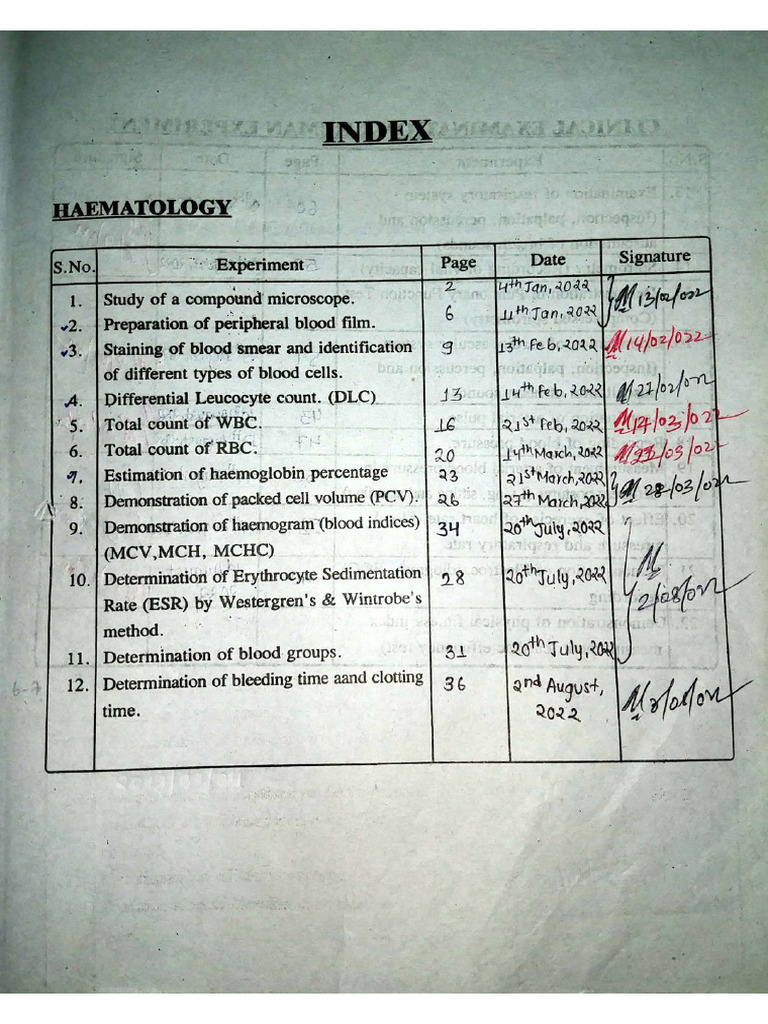 INDEX
HAEMATOLOGY
S.No. Experiment Page Date Signature
1. Study of a compound microscope. 2 4th Jan, 2022
2. Preparation of peripheral blood film. 6 11th Jan, 2022 13/02/022
3. Staining of blood smear and identification 9 13th Feb, 2022 14/02/022
of different types of blood cells.
4. Differential Leucocyte count. (DLC) 13 14th Feb, 2022 27/02/022
5. Total count of WBC. 16 21st Feb, 2022 14/03/022
6. Total count of RBC. 20 14th March, 2022 /03/022
7. Estimation of haemoglobin percentage 23 21st March, 2022
8. Demonstration of packed cell volume (PCV). 26 27th March, 2022 28/03/022
9. Demonstration of haemogram (blood indices) 34 20th July, 2022
(MCV,MCH, MCHC)
10. Determination of Erythrocyte Sedimentation 28 20th July, 2022
Rate (ESR) by Westergren's & Wintrobe's 2/08/022
method.
11. Determination of blood groups. 31 20th July, 2022
12. Determination of bleeding time aand clotting 36 2nd August,
time. 2022
6-7